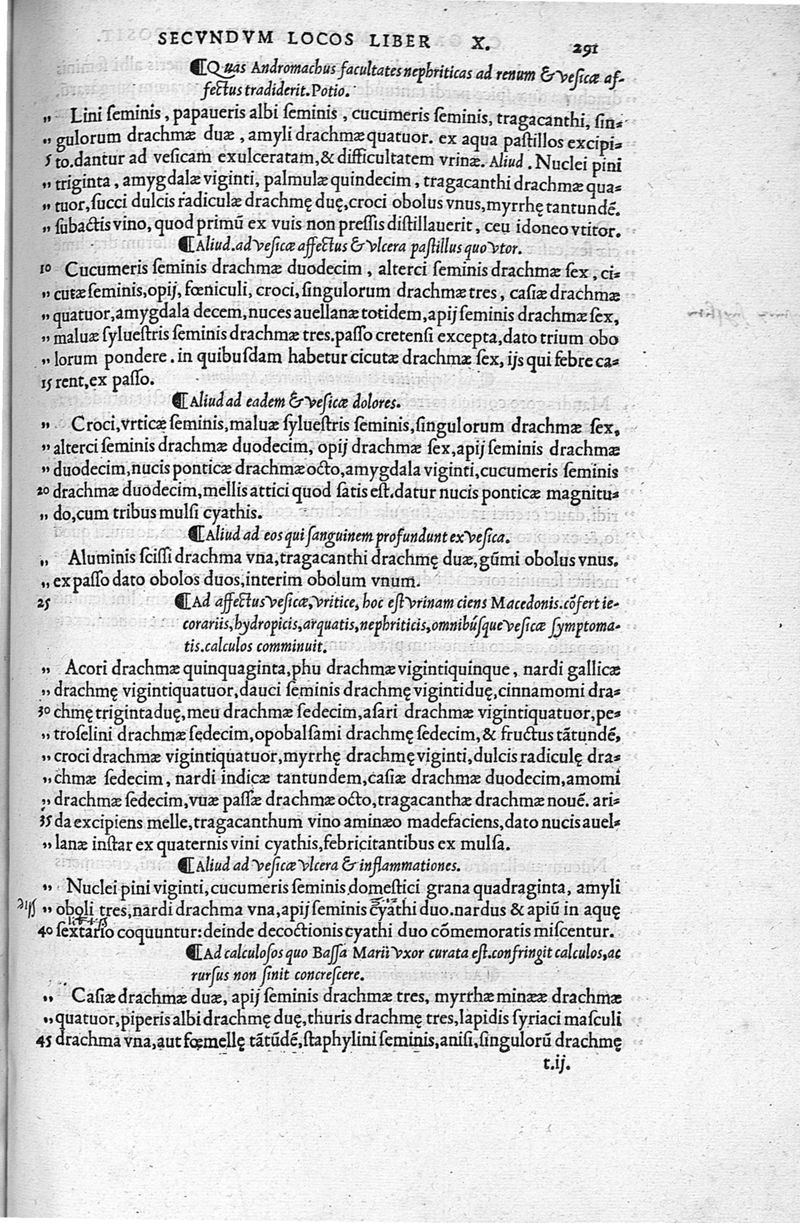 SECVNDVM LOCOS LIBER X. 291
¶Quas Andromachus facultates nephriticas ad renum & vesicæ af-
fectus tradiderit. Potio.
„ Lini seminis, papaueris albi seminis, cucumeris seminis, tragacanthi, sin-
„ gulorum drachmæ duæ, amyli drachmæ quatuor. ex aqua pastillos excipi-
5 to. dantur ad vesicam exulceratam, & difficultatem vrinæ. Aliud. Nuclei pini
„ triginta, amygdalæ viginti, palmulæ quindecim, tragacanthi drachmæ qua-
„ tuor, succi dulcis radiculæ drachmę duę, croci obolus vnus, myrrhę tantundē.
„ subactis vino, quod primū ex vuis non pressis distillauerit, ceu idoneo vtitor.
¶Aliud. ad vesicæ affectus & vlcera pastillus quo vtor.
10 Cucumeris seminis drachmæ duodecim, alterci seminis drachmæ sex, ci-
„ cutæ seminis, opij, fœniculi, croci, singulorum drachmæ tres, casiæ drachmæ
„ quatuor, amygdala decem, nuces auellanæ totidem, apij seminis drachmæ sex,
„ maluæ syluestris seminis drachmæ tres. passo cretensi excepta, dato trium obo
„ lorum pondere. in quibusdam habetur cicutæ drachmæ sex, ijs qui febre ca-
15 rent, ex passo.
¶Aliud ad eadem & vesicæ dolores.
„ Croci, vrticæ seminis, maluæ syluestris seminis, singulorum drachmæ sex,
„ alterci seminis drachmæ duodecim, opij drachmæ sex, apij seminis drachmæ
„ duodecim, nucis ponticæ drachmæ octo, amygdala viginti, cucumeris seminis
20 drachmæ duodecim, mellis attici quod satis est. datur nucis ponticæ magnitu-
„ do, cum tribus mulsi cyathis.
¶Aliud ad eos qui sanguinem profundunt ex vesica.
„ Aluminis scissi drachma vna, tragacanthi drachmę duæ, gūmi obolus vnus.
„ ex passo dato obolos duos, interim obolum vnum.
25 ¶Ad affectus vesicæ, vritice, hoc est vrinam ciens Macedonis. cōfert ie-
corariis, hydropicis, arquatis, nephriticis, omnibúsque vesicæ symptoma-
tis. calculos comminuit.
„ Acori drachmæ quinquaginta, phu drachmæ vigintiquinque, nardi gallicæ
„ drachmę vigintiquatuor, dauci seminis drachmę vigintiduę, cinnamomi dra-
30 chmę trigintaduę, meu drachmæ sedecim, asari drachmæ vigintiquatuor, pe-
„ troselini drachmæ sedecim, opobalsami drachmę sedecim, & fructus tātundē,
„ croci drachmæ vigintiquatuor, myrrhę drachmę viginti, dulcis radiculę dra-
„ chmæ sedecim, nardi indicæ tantundem, casiæ drachmæ duodecim, amomi
„ drachmæ sedecim, vuæ passæ drachmæ octo, tragacanthæ drachmæ nouē. ari-
35 da excipiens melle, tragacanthum vino aminæo madefaciens, dato nucis auel-
„ lanæ instar ex quaternis vini cyathis, febricitantibus ex mulsa.
¶Aliud ad vesicæ vlcera & inflammationes.
„ Nuclei pini viginti, cucumeris seminis domestici grana quadraginta, amyli
„ oboli tres, nardi drachma vna, apij seminis cyathi duo. nardus & apiū in aquę
40 sextario coquuntur: deinde decoctionis cyathi duo cōmemoratis miscentur.
¶Ad calculosos quo Bassa Marii vxor curata est. confringit calculos, ac
rursus non sinit concrescere.
„ Casiæ drachmæ duæ, apij seminis drachmæ tres, myrrhæ minææ drachmæ
„ quatuor, piperis albi drachmę duę, thuris drachmę tres, lapidis syriaci masculi
45 drachma vna, aut fœmellę tātūdē, staphylini seminis, anisi, singulorū drachmę
t.ij.